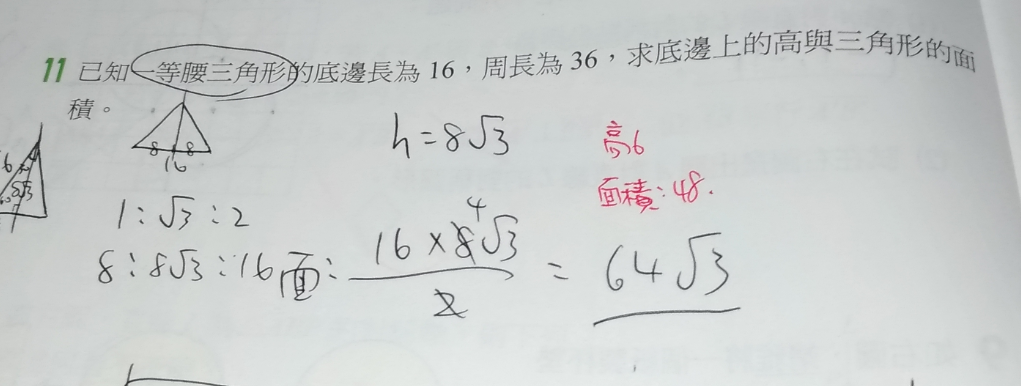 11 已知一等腰三角形的底邊長為 16，周長為 36，求底邊上的高與三角形的面
積。
8 8
16
h=8√3
高6
面積：48.
1：√3：2
8：8√3：16
面：16×8√3/2 = 64√3
4